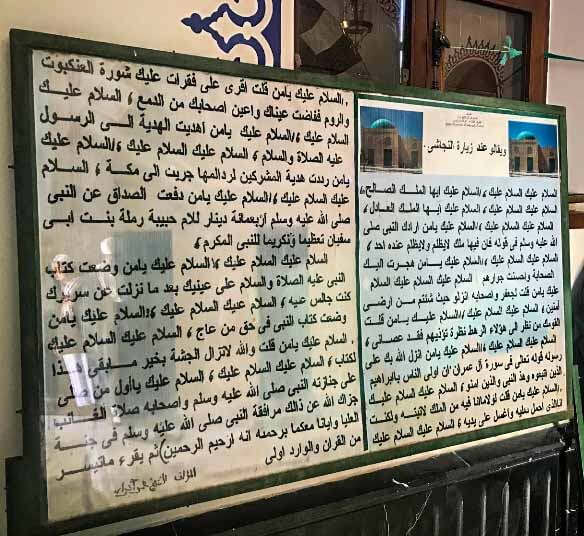 ويقالو عند زيارة النجاشي.
السلام عليك السلام عليك ،،السلام عليك ايها الملك الصالح،
السلام عليك السلام عليك ،السلام عليك ايها الملك العادل،
السلام عليك السلام عليك ،،السلام عليك يامن ارادك النبى صلى
الله عليه وسلم فى قوله فان فيها ملك لايظلم ولايظلم عنده احد ،
السلام عليك السلام عليك ،،السلام عليك يامن هجرت اليك
الصحابة واحسنت جوارهم ،السلام عليك السلام عليك السلام
عليك يامن قلت لجعفر وصحابه انزلو حيث شئتم من ارضى
آمنين ،السلام عليك السلام عليك ،،السلام عليك يامن قلت
القومك من نظر الى هؤلاء الرهط نظرة تؤذيهم فقد عصانى ،
السلام عليك السلام عليك ،،السلام عليك يامن انزل الله بك على
رسوله قوله تعالى فى سورة آل عمران ان اولى الناس بالبراهيم
الذين اتبعوه وهذ النبى والذين امنو ، السلام عليك السلام عليك
،،السلام عليك يامن قلت لولامانا فيه من الملك لاتيته ولكنت
انالذى احمل نعليه واغسل على يديه ، السلام عليك السلام عليك
،،السلام عليك يامن قلت اقرى على فقرات عليك سورة العنكبوت
والروم ففاضت عيناك واعين اصحابك من الدمع ، السلام عليك
السلام عليك ،،السلام عليك يامن اهديت الهدية الى الرسول
عليه الصلاة والسلام ، السلام عليك السلام عليك ،،السلام عليك
يامن رددت هدية المشركين لردالمها جريت الى مكة ، السلام
عليك السلام عليك ،،السلام عليك يامن دفعت الصداق عن النبى
صلى الله عليه وسلم أربعمائة دينار للام حبيبة رملة بنت ابى
سفيان تعظيما وتكريما للنبى المكرم ،
السلام عليك السلام عليك ،،السلام عليك يامن وضعت كتاب
النبى عليه الصلاة والسلام على عينيك بعد ما نزلت عن سريرك
كنت جالس عليه ، السلام عليك السلام عليك ،،السلام عليك يامن
وضعت كتاب النبى فى حق من عاج ، السلام عليك السلام عليك
، السلام عليك يامن قلت والله لاتزال الحبشة بخير مابقى هذا
لكتاب ، السلام عليك السلام عليك ،السلام عليك ياأول من صلى
على جنازته النبى صلى الله عليه وسلم واصحابه صلاة الغائب
جزاك الله عن ذالك مرافقة النبى صلى الله عليه وسلم فى جنة
العليا وايانا معكما برحمته انه ارحيم الرحمين)ثم يقرء ماتيسر
من القران والوارد اولى